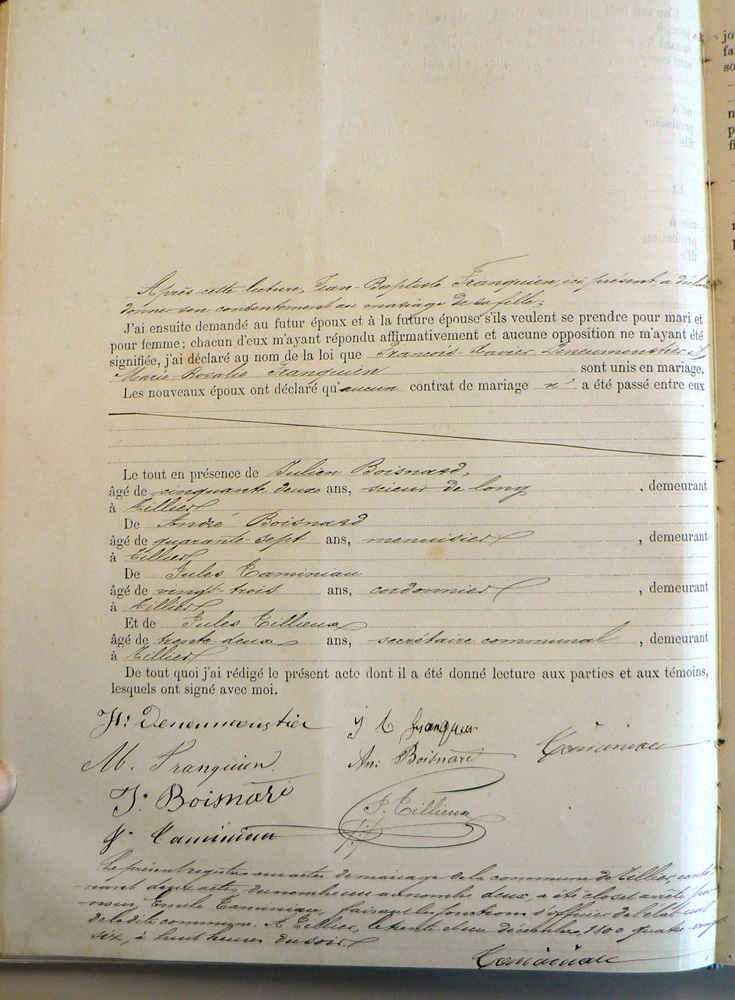 Après cette lecture, Jean-Baptiste Franquien, ici présent, a déclaré
donner son consentement au mariage de sa fille;
J'ai ensuite demandé au futur époux et à la future épouse s'ils veulent se prendre pour mari et
pour femme; chacun d'eux m'ayant répondu affirmativement et aucune opposition ne m'ayant été
signifiée, j'ai déclaré au nom de la loi que François Xavier Deneumoustier et
Marie Rosalie Franquien sont unis en mariage.
Les nouveaux époux ont déclaré qu'aucun contrat de mariage n' a été passé entre eux
Le tout en présence de Julien Boisnard,
âgé de cinquante deux ans, scieur de long , demeurant
à Tillier
De André Boisnard
âgé de quarante-sept ans, menuisier , demeurant
à Tillier
De Jules Taminiau
âgé de vingt-trois ans, cordonnier , demeurant
à Tillier
Et de Jules Tillieux
âgé de trente deux ans, secrétaire communal , demeurant
à Tillier
De tout quoi j'ai rédigé le présent acte dont il a été donné lecture aux parties et aux témoins,
lesquels ont signé avec moi.
Deneumoustier J B Franquien
M. Franquien An: Boisnard Taminiau
J: Boisnard J. Tillieux
J. Taminiau
Le présent registre aux actes de mariage de la commune de Tillier, conte-
nant deux actes, du nombre un au nombre deux, a été clos et arrêté par
nous, Emile Taminiau, faisant les fonctions d'officier de l'état-civil
de la dite commune. A Tillier, le trente et un décembre, 1800 quatre-vingt
six, à huit heures du soir
Taminiau